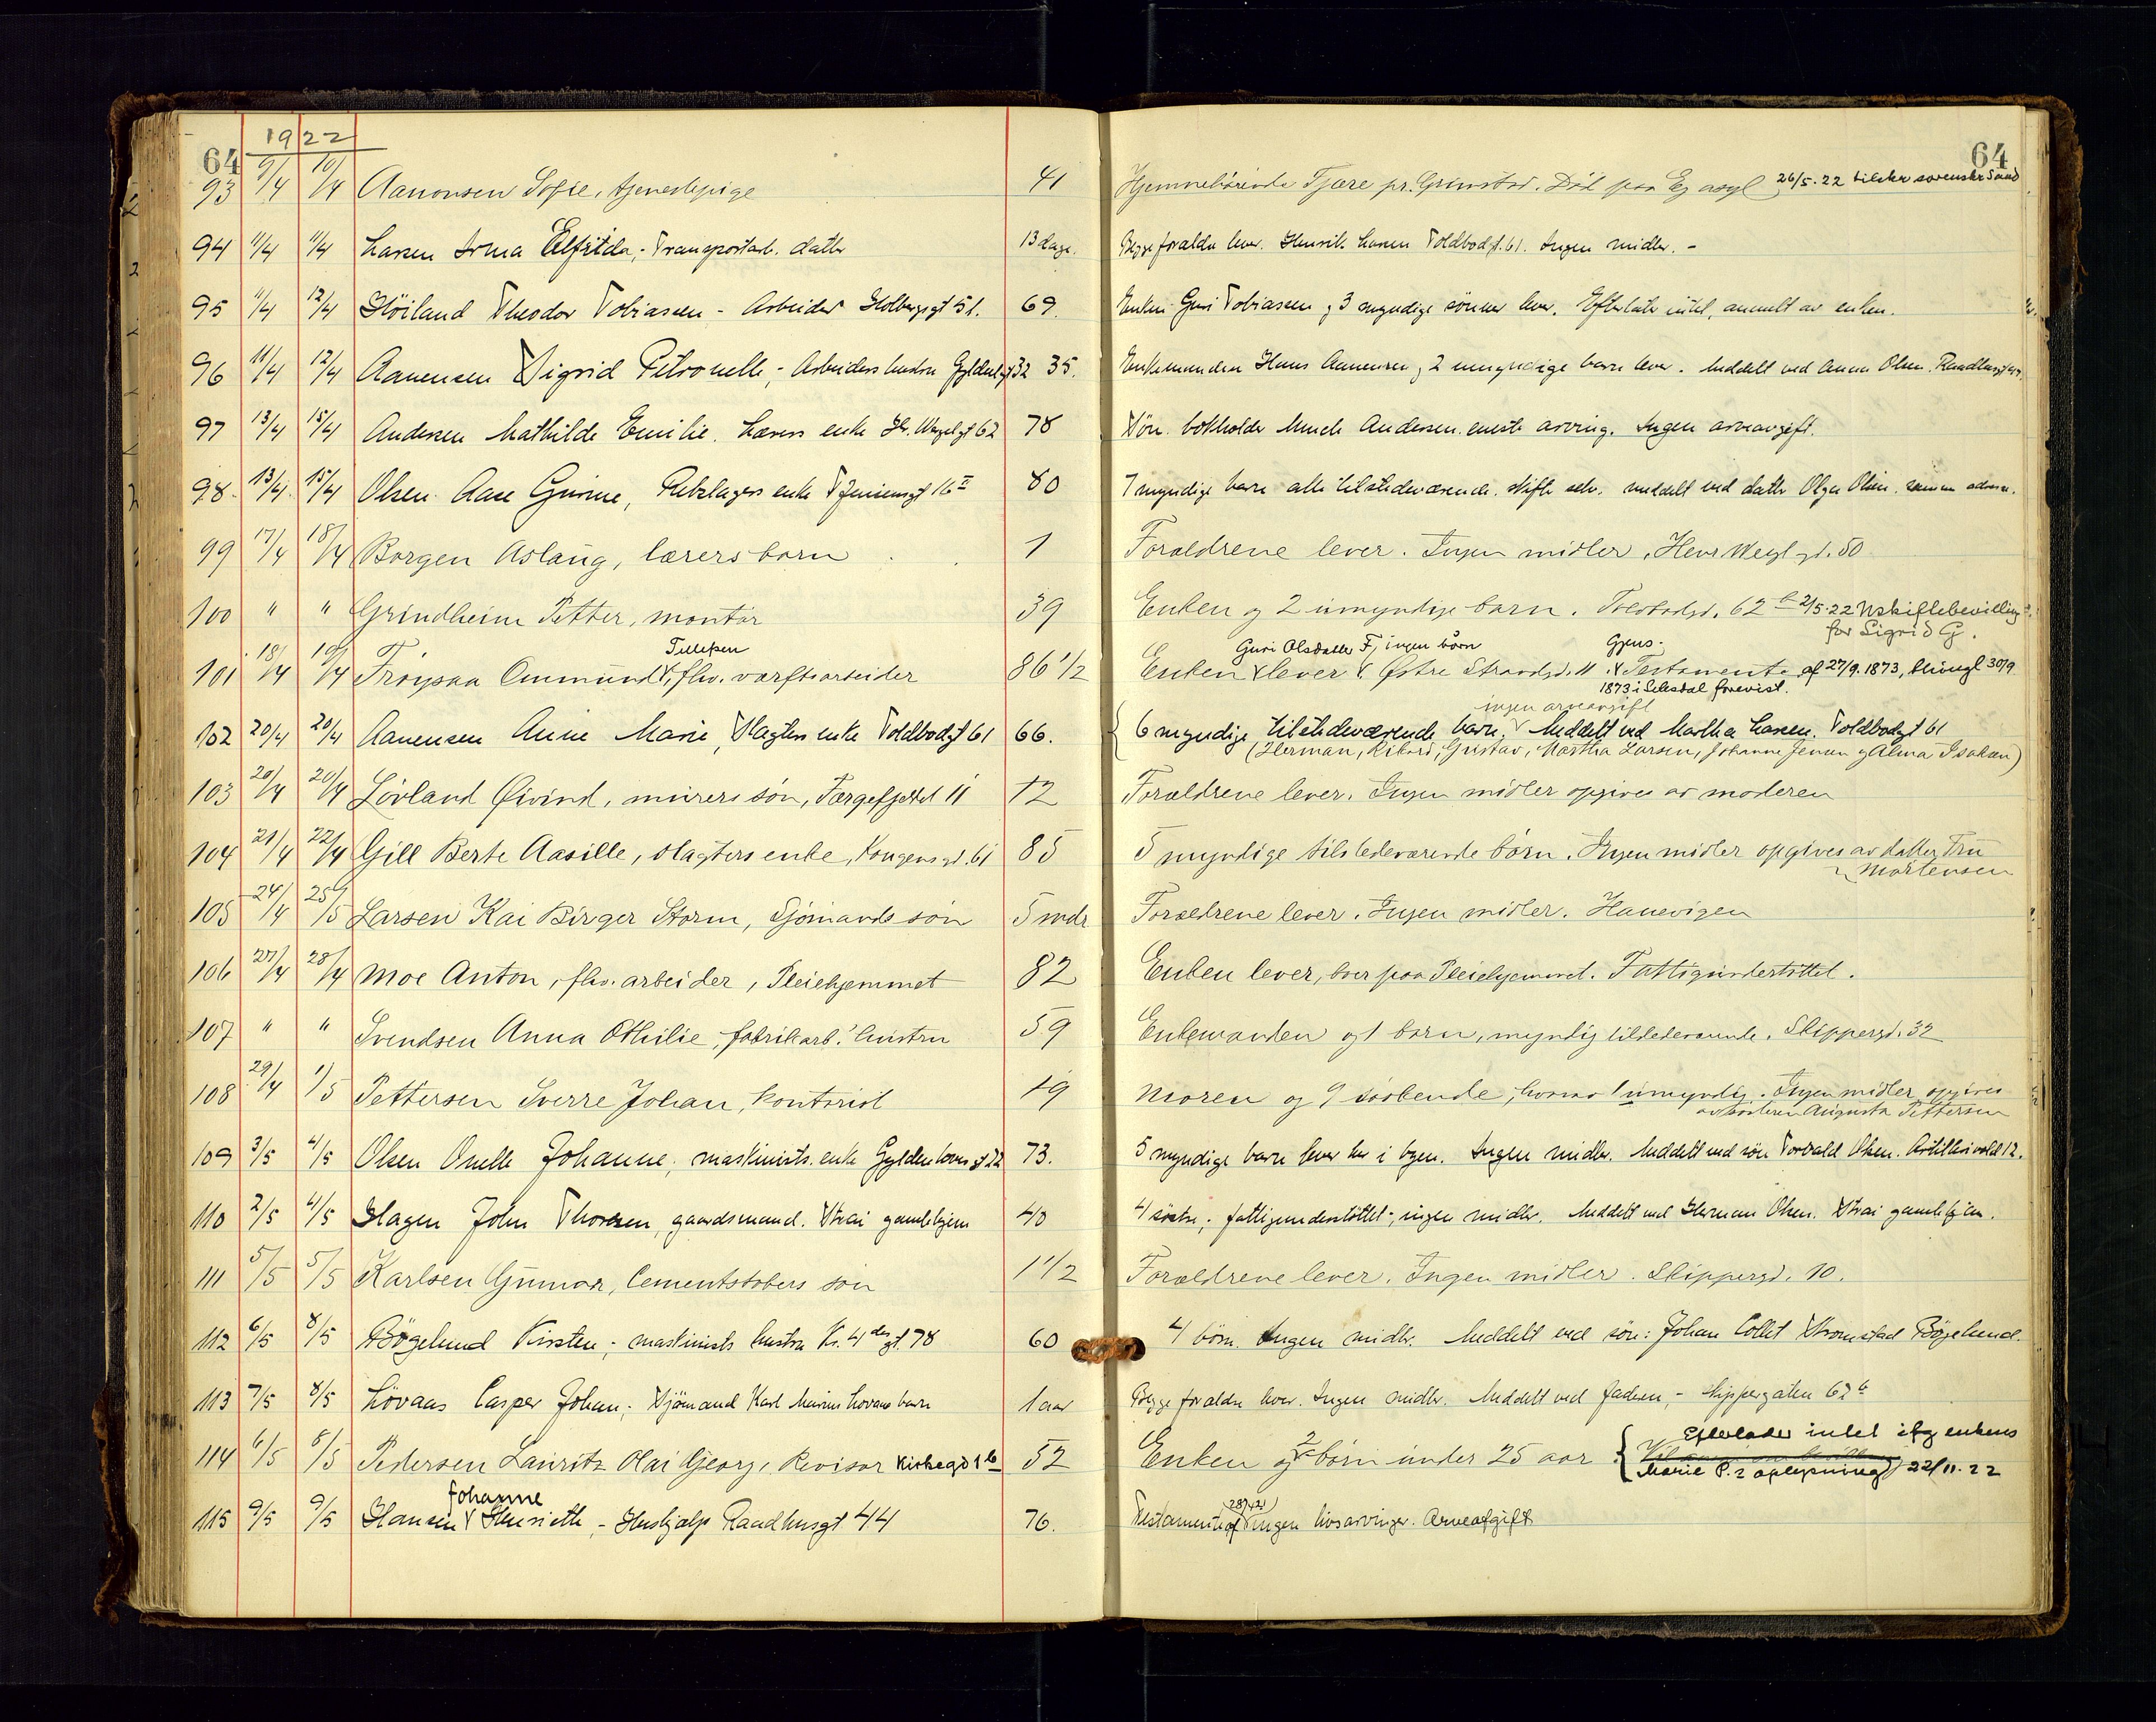 1922
64 64
93 9/4 10/4 Aanonsen Sofie, tjenestepige 41 Hjemmehörende Fjære pr. Grimstad. Död paa Eg asyl 26/5.22 tilskr sorenskr Sand
94 11/4 11/4 Larsen Irma Elfrida, Transportarb. datter 13 dage. Begge foraldre lever. Henrik Larsen Toldbodgt. 61. Ingen midler. -
95 11/4 12/4 Höiland Theodor Tobiassen - Arbeider Holbergsgt 51. 69. Enken Guri Tobiassen og 3 myndige sönner lever. Efterlater intet, anmeldt av enken.
96 11/4 12/4 Aanensen Sigrid Petronelle, - Arbeiders hustru Gyldenl.gt 32 35. Enkemanden Hans Aanensen og 2 umyndige barn lever. Meddelt ved Anna Olsen. Raadhusgt
97 13/4 15/4 Andersen Mathilde Emilie. Lærers enke H. Wergel.gt 62 78 Sön. bokholder Munch Andersen. eneste arving. Ingen arveavgift.
98. 13/4 15/4 Olsen Aase Gurine, Rebslagers enke T Jensensgt 16 II 80 7 myndige barn alle tilstedeværende. skifte selv. meddelt ved datter Olga Olsen. samme adresse.
99 17/4 18/4 Borgen Aslaug, lærers barn 1 Foraldrene lever. Ingen midler, Henr Wergl gt. 50
100 " " Grindheim Petter, montör 39 Enken og 2 umyndige barn. Toldbodgt. 62 b 2/5.22 Uskiftebevilling
for Sigrid G.
Tellefsen Guri Olsdatter F, ingen börn Gjens.
101 18/4 19/4 Fröysaa Ommund, fhv. værftsarbeider 86 1/2 Enken lever Östre Strandgt. 11 Testamente af 27/9. 1873, thingl 30/9
1873 i Setesdal forevist.
ingen arveavgift
102 20/4 20/4 Aanensen Anne Marie, Slagters enke Toldbodgt 61 66. 6 myndige tilstedeværende barn. Meddelt ved Martha Larsen. Toldbodgt 61
(Herman, Rikard, Gustav, Martha Larsen, Johanne Jensen og Alma Isaksen)
103 20/4 20/4 Lövland Öivind, murers sön, Færgefjeldet 11 12 Foraldrene lever. Ingen midler opgives av moderen
104 21/4 22/4 Gill Berte Aasille, slagters enke, Kongens gt. 61 85 5 myndige tilstedeværende börn. Ingen midler opgives av datter Fru
Mortensen
105 24/4 25/5 Larsen Kai Birger Storm, Sjömands sön 5 mdr Foraldrene lever. Ingen midler. Hanevigen
106 27/4 28/4 Moe Anton, fhv. arbeider, Pleiehjemmet 82 Enken lever, bor paa Pleiehjemmet. Fattigunderstöttet.
107 " " Svendsen Anna Othilie, fabrikarb. hustru 59 Enkemanden og 1 barn, myndig tilstedeværende. Skippergt. 32
108 29/4 1/5 Pettersen Sverre Johan, kontorist 19 Moren og 9 söskende, hvorav 1 umyndig. Ingen midler opgives
av moderen Augusta Pettersen
109 3/5 4/5 Olsen Onelle Johanne, maskinists. enke Gyldenlöves gt 22 73. 5 myndige barn lever her i byen. Ingen midler. Meddelt ved sön Torvald Olsen. Artillerivold 12.
110 2/5 4/5 Hagen John Thorsen, gaardsmand. Strai gamlehjem 40 4 söstre, fattigunderstöttet, ingen midler. Meddelt ved Herman Olsen. Strai gamlehjem.
111 5/5 5/5 Karlsen Gunnar, Cementstöbers sön 1 1/2 Foraldrene lever. Ingen midler. Skippergt. 10.
112 6/5 8/5 Bögelund Kirsten, maskinists hustru Kr. 4 des gt. 78 60 4 börn. Ingen midler. Meddelt ved sön: Johan Collet Stromstad Bögelund.
113 7/5 8/5 Lövaas Casper Johan; Sjömand Karl Marius Lovaas barn 1 aar Begge foraldre lever. Ingen midler. Meddelt ved faderen, - Skippergaten 62 b
Efterlader intet ifg enkens
114 6/5 8/5 Pedersen Lauritz Olai Georg, Revisor Kirkegt 1 b 52 Enken og 2 börn under 25 aar
Marie P.s oplysning 22/11.22
Johanne 28/4 21
115 9/5 9/5 Hansen Henriette, - Hushjælp Raadhusgt. 44 76. Testamente af ingen livsarvinger. Arveafgift